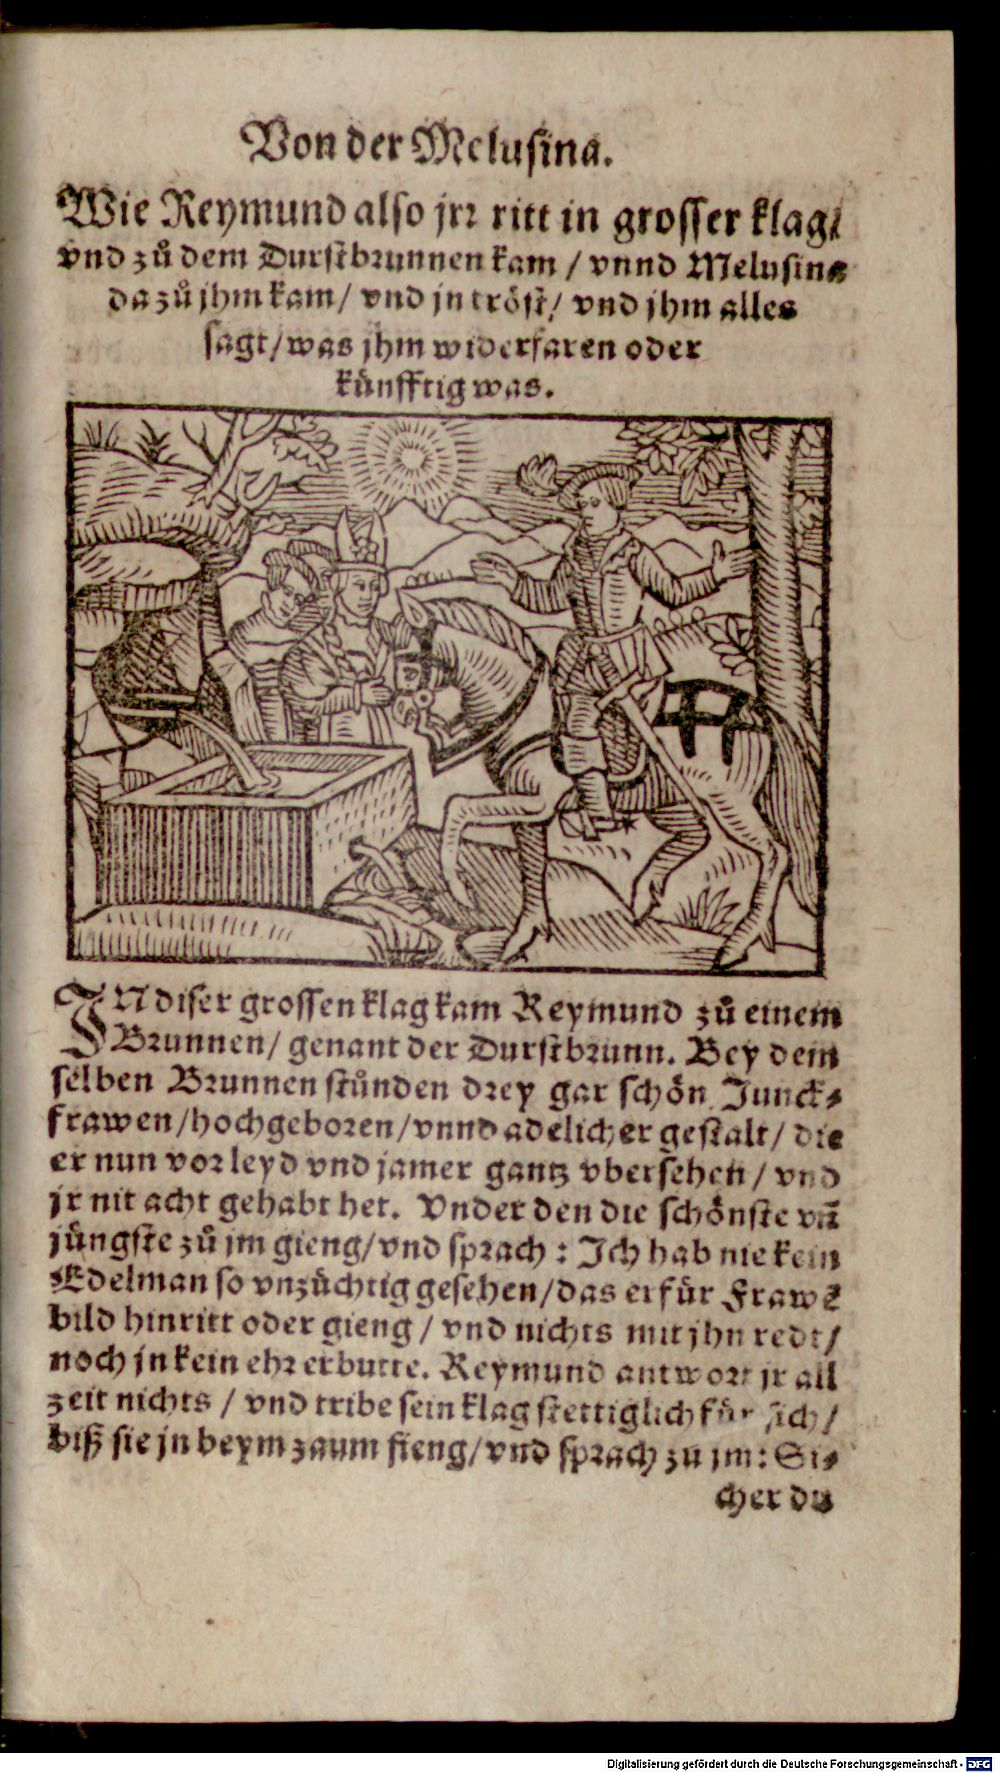 Von der Melusina.
Wie Reymund also jrꝛ ritt in grosser klag/
vnd zů dem Durstbꝛunnen kam / vnnd Melusina
da zů jhm kam/ vnd jn tröst/ vnd jhm alles
sagt/ was jhm widerfaren oder
künfftig was.
IN diser grossen klag kam Reymund zů einem
Bꝛunnen/ genant der Durstbꝛunn. Bey dem
selben Bꝛunnen stůnden dꝛey gar schön Junck⸗
frawen/hochgeboꝛen/vnnd adelicher gestalt/ die
er nun voꝛ leyd vnd jamer gantz vbersehen/ vnd
jr nit acht gehabt het. Vnder den die schönste vn̄
jüngste zů jm gieng/vnd spꝛach : Ich hab nie kein
Edelman so vnzüchtig gesehen/das er für Frawē
bild hinritt oder gieng / vnd nichts mit jhn redt/
noch jn kein ehꝛ erbutte. Reymund antwoꝛt jr all
zeit nichts / vnd tribe sein klag stettiglich für sich/
biß sie jn beym zaum fieng/vnd spꝛach zu jm: Si⸗
cher du
Digitalisierung gefördert durch die Deutsche Forschungsgemeinschaft - DFG